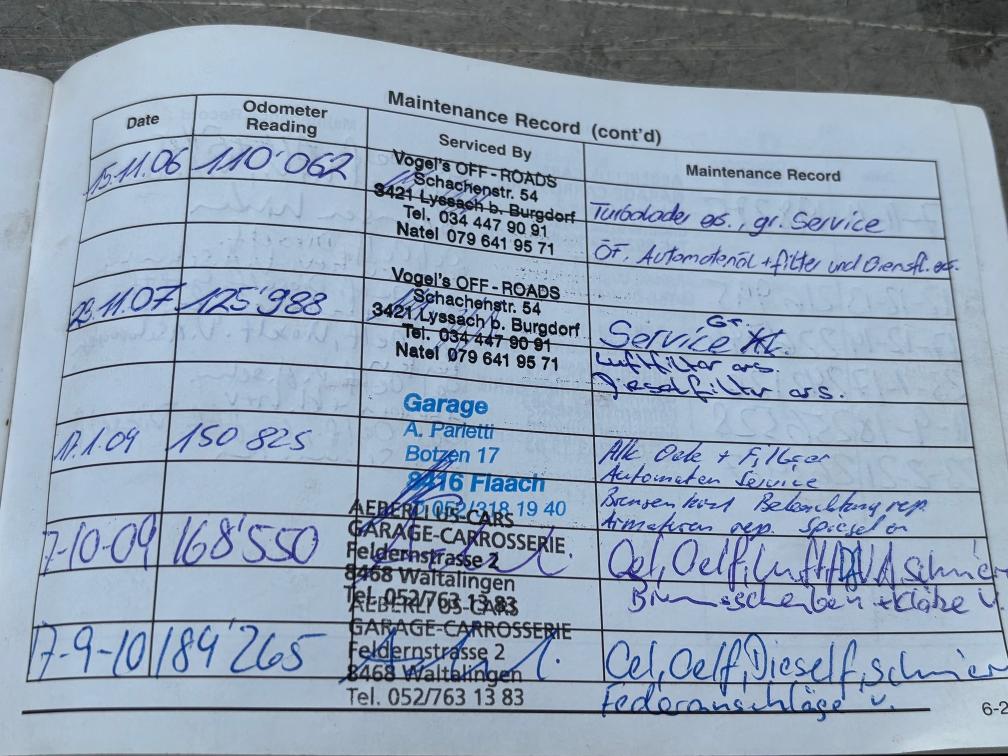 Maintenance Record (cont'd)
Date
Odometer Reading
Serviced By
Maintenance Record
15.11.06
110'062
Vogel's OFF - ROADS
Schachenstr. 54
3421 Lyssach b. Burgdorf
Tel. 034 447 90 91
Natel 079 641 95 71
Turbolader es., gr. Service
ÖF, Automatenöl + filter und Dienstl. es.
23.11.07
125'988
Vogel's OFF - ROADS
Schachenstr. 54
3421 Lyssach b. Burgdorf
Tel. 034 447 90 91
Natel 079 641 95 71
Service Gr.
Luftfilter ers.
Dieselfilter ers.
17.1.09
150 825
Garage
A. Parietti
Botzen 17
8416 Flaach
052/318 19 40
Alle Oele + Filter
Automaten Service
Beleuchtung rep.
Armaturen rep. Spiegel
7-10-09
168'550
AEBERLI US-CARS
GARAGE-CARROSSERIE
Feldernstrasse 2
8468 Waltalingen
Tel. 052/763 13 83
Oel, Oelf, Luftf schmier
Bremsscheiben + Klötze v
17-9-10
184'265
AEBERLI US-CARS
GARAGE-CARROSSERIE
Feldernstrasse 2
8468 Waltalingen
Tel. 052/763 13 83
Oel, Oelf, Dieself, schmier
Federanschläge v.
6-2